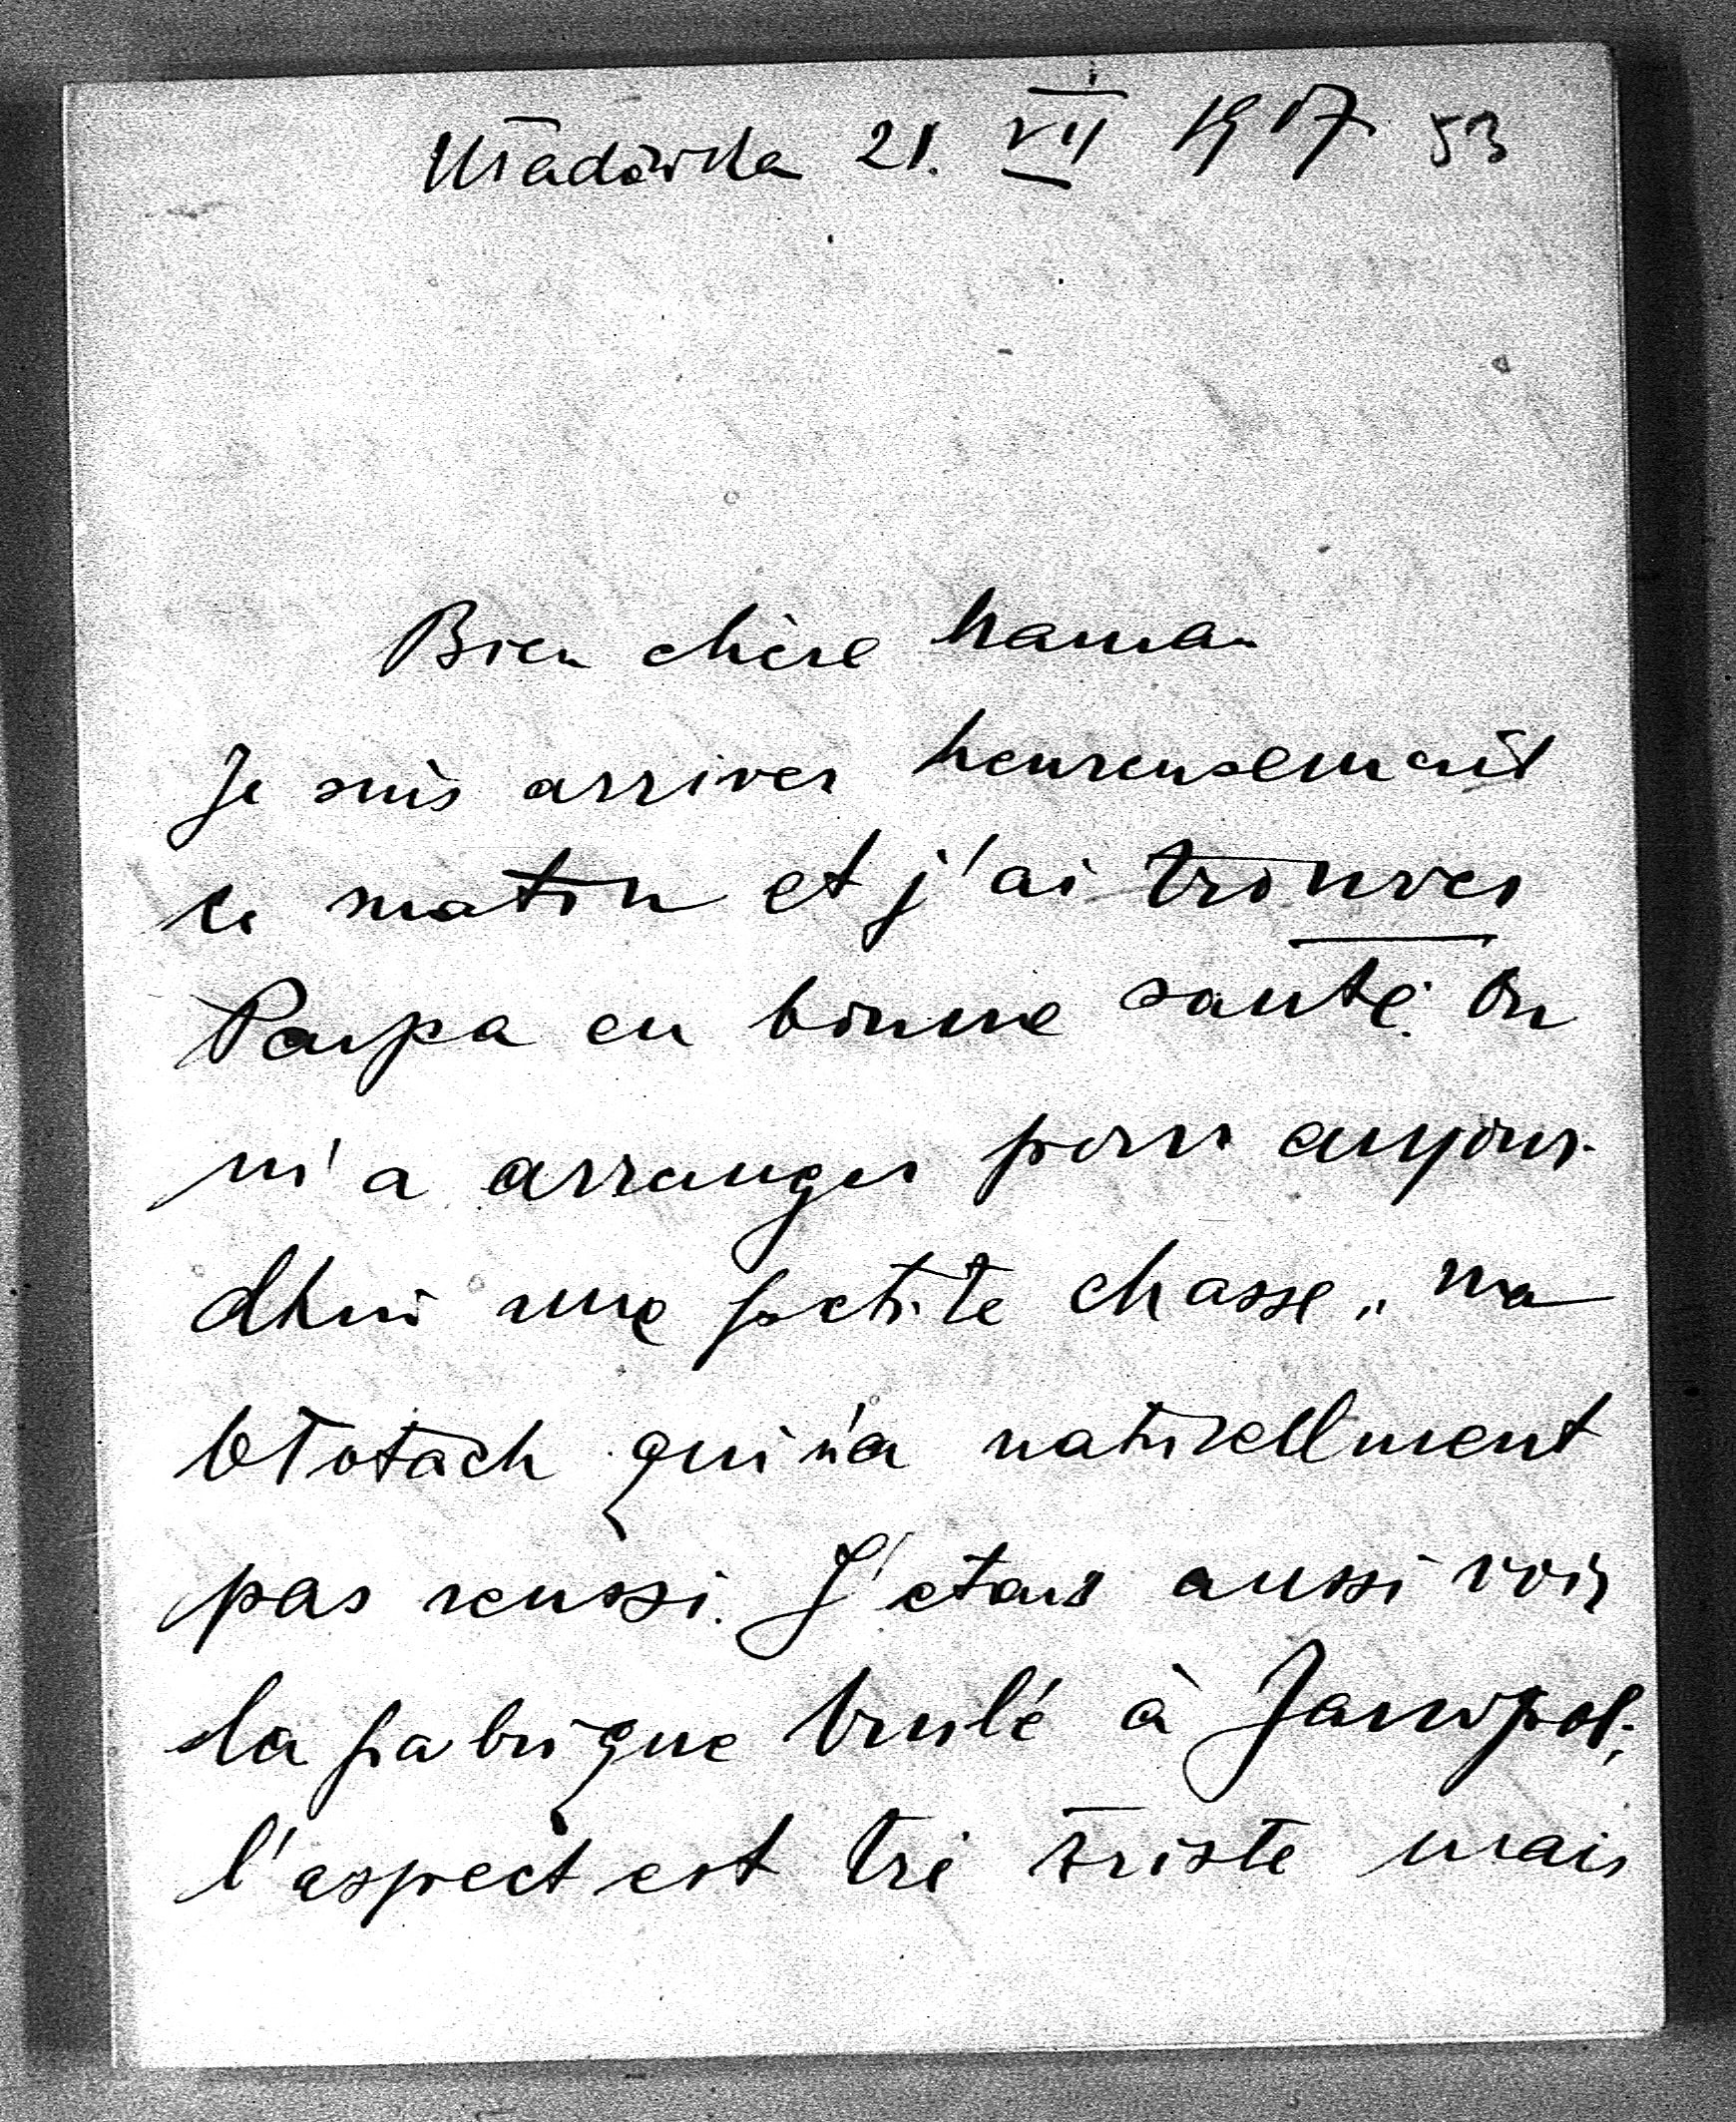 Uładówka 21. VII 1917 53
Bien chère Maman
Je suis arriver heureusement
ce matin et j'ai trouver
Paupa en bonne santé. On
m'a arranger pour aujour-
dhui une petite chasse „na
błotach qui n'a naturellment
pas reussi. J'etais aussi voir
la fabrique brulé à Janopol,
l'aspect est trè triste mais